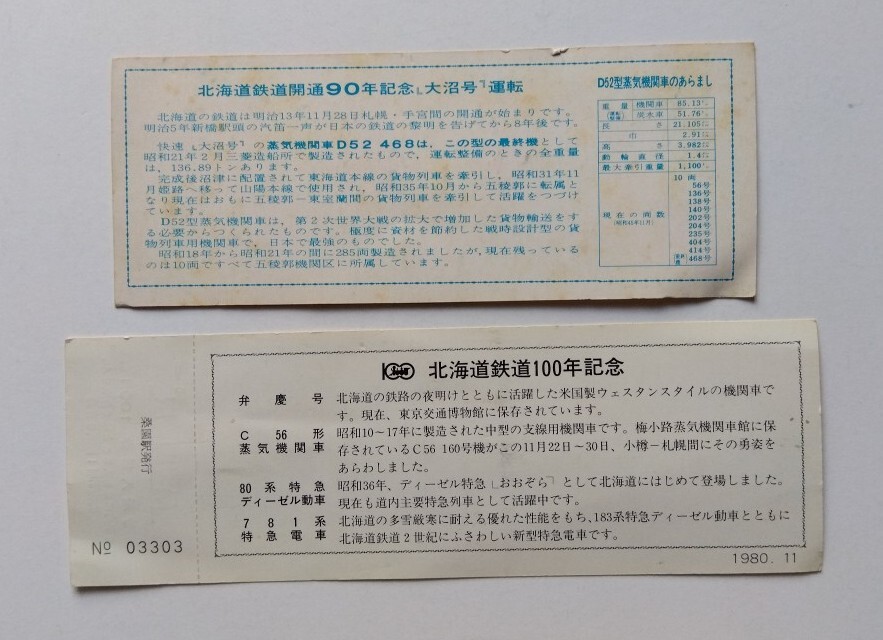 北海道鉄道開通90年記念「大沼号」運転
北海道の鉄道は明治13年11月28日札幌・手宮間の開通が始まりです。
明治5年新橋駅頭の汽笛一声が日本の鉄道の黎明を告げてから8年後です。
快速「大沼号」の蒸気機関車D52 468は、この型の最終機として
昭和21年2月三菱造船所で製造されたもので、運転整備のときの全重量
は、136.89トンあります。
完成後沼津に配置されて東海道本線の貨物列車を牽引し、昭和31年11
月姫路へ移って山陽本線で使用され、昭和35年10月から五稜郭に転属と
なり現在はおもに五稜郭−東室蘭間の貨物列車を牽引して活躍をつづけ
ています。
D52型蒸気機関車は、第2次世界大戦の拡大で増加した貨物輸送をす
る必要からつくられたものです。極度に資材を節約した戦時設計型の貨
物列車用機関車で、日本で最強のものでした。
昭和18年から昭和21年の間に285両製造されましたが、現在残っている
のは10両ですべて五稜郭機関区に所属しています。
D52型蒸気機関車のあらまし
重量 機関車 85.13
炭水車 51.76
長さ 21.105
巾 2.91
高さ 3.982
動輪直径 1.4
最大牽引重量 1,100
現在の両数
10両
56号
136号
138号
140号
202号
204号
235号
404号
414号
468号
100 北海道鉄道100年記念
弁慶号 北海道の鉄路の夜明けとともに活躍した米国製ウェスタンスタイルの機関車で
す。現在、東京交通博物館に保存されています。
C56形 昭和10〜17年に製造された中型の支線用機関車です。梅小路蒸気機関車館に保
蒸気機関車 存されているC56 160号機がこの11月22日〜30日、小樽−札幌間にその勇姿を
あらわしました。
80系特急 昭和36年、ディーゼル特急「おおぞら」として北海道にはじめて登場しました。
ディーゼル動車 現在も道内主要特急列車として活躍中です。
781系 北海道の多雪厳寒に耐える優れた性能をもち、183系特急ディーゼル動車とともに
特急電車 北海道鉄道2世紀にふさわしい新型特急電車です。
桑園駅発行
№ 03303
1980.11